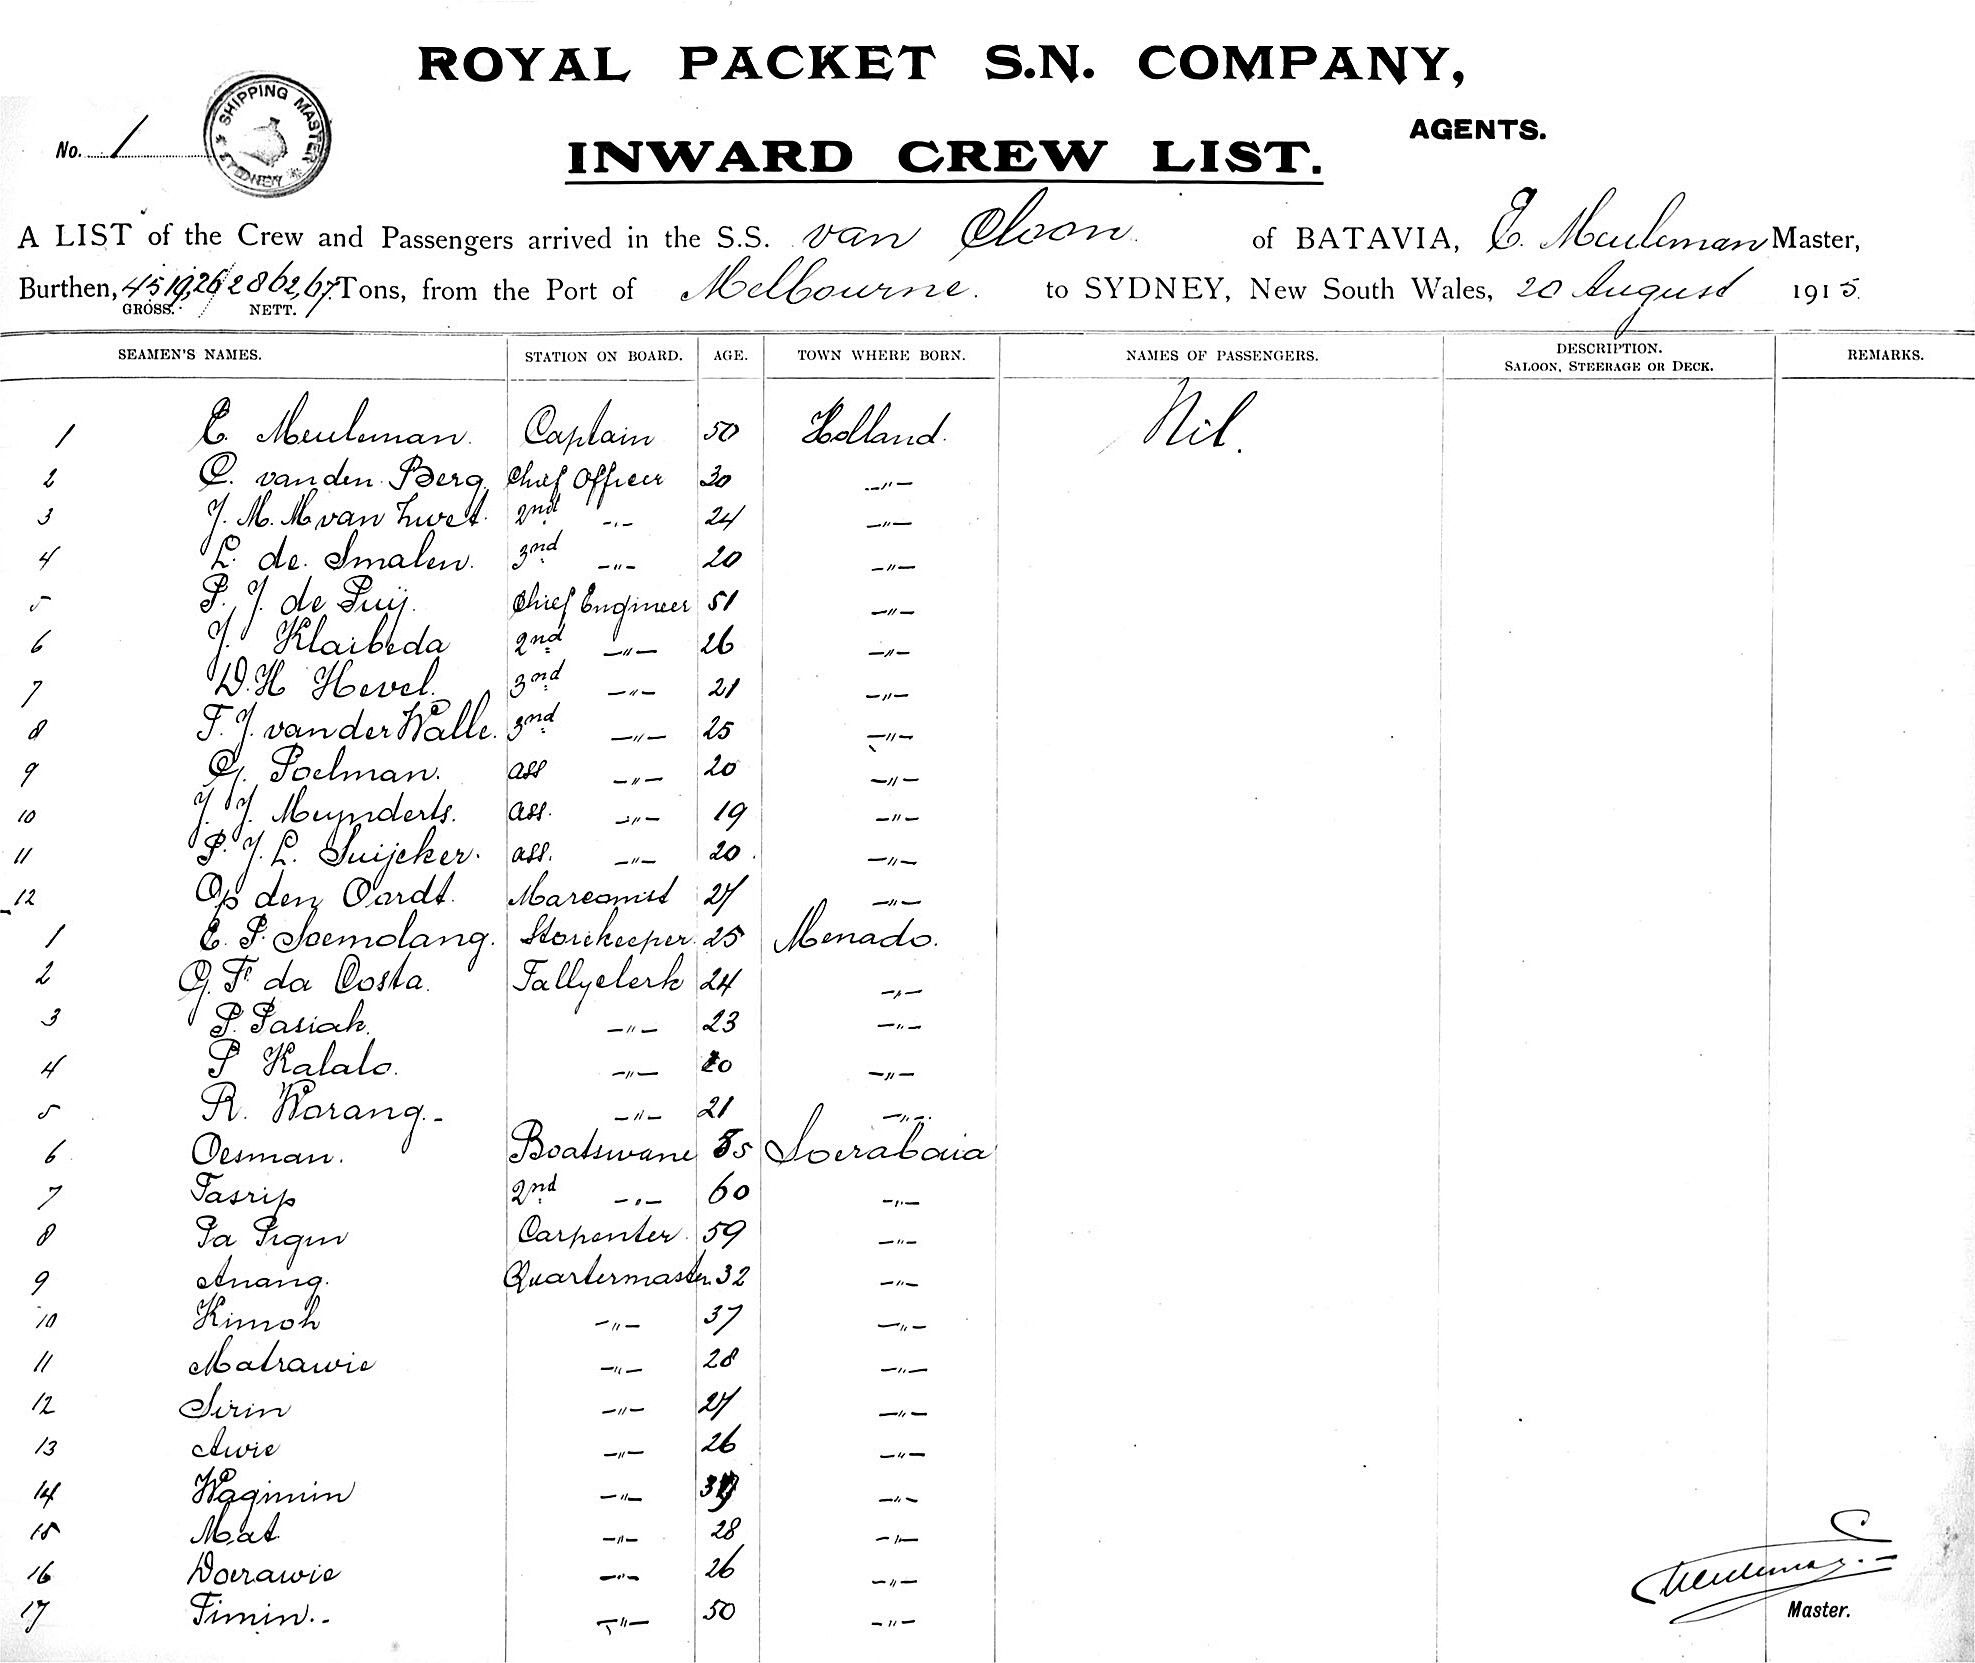 ROYAL PACKET S.N. COMPANY,
AGENTS.
No. 1
SHIPPING MASTER SYDNEY
INWARD CREW LIST.
A LIST of the Crew and Passengers arrived in the S.S. van Cloon. of BATAVIA, E. Meuleman Master,
Burthen, 4519,26 2862,67 Tons, from the Port of Melbourne. to SYDNEY, New South Wales, 20 August 1915.
GROSS. NETT.
SEAMEN'S NAMES. STATION ON BOARD. AGE. TOWN WHERE BORN. NAMES OF PASSENGERS. DESCRIPTION. SALOON, STEERAGE OR DECK. REMARKS.
1 E. Meuleman. Captain 50 Holland. Nil.
2 C. van den Berg. Chief Officer 30 —"—
3 J. M. M van Zwet. 2nd —"— 24 —"—
4 L. de Smalen. 3nd —"— 20 —"—
5 P. J. de Puij. Chief Engineer 51 —"—
6 J. Klaibeda 2nd —"— 26 —"—
7 W. H Hevel. 3nd —"— 21 —"—
8 F. J. van der Walle. 3nd —"— 25 —"—
9 G. Poelman. ass —"— 20 —"—
10 J. J. Meynderts. ass. —"— 19 —"—
11 P. J. L. Suijcker. ass. —"— 20 —"—
12 Op den Oordt. Marconist 27 —"—
1 E. P. Soemolang. Storekeeper. 25 Menado.
2 G. F. da Costa. Tallyclerk 24 —"—
3 P. Pasiak. —"— 23 —"—
4 P Kalalo. —"— 20 —"—
5 R. Worang. —"— 21 —"—
6 Oesman. Boatswane 55 Soerabaia
7 Tasrip 2nd —"— 60 —"—
8 Pa Pigin Carpenter. 59 —"—
9 Anang. Quartermaster. 32 —"—
10 Kimoh —"— 37 —"—
11 Matrawie —"— 28 —"—
12 Sirin —"— 27 —"—
13 Awie —"— 26 —"—
14 Wagimin —"— —"—
15 Mat —"— 28 —"—
16 Doerawie —"— 26 —"—
17 Timin. —"— 50 —"—
E Meuleman
Master.